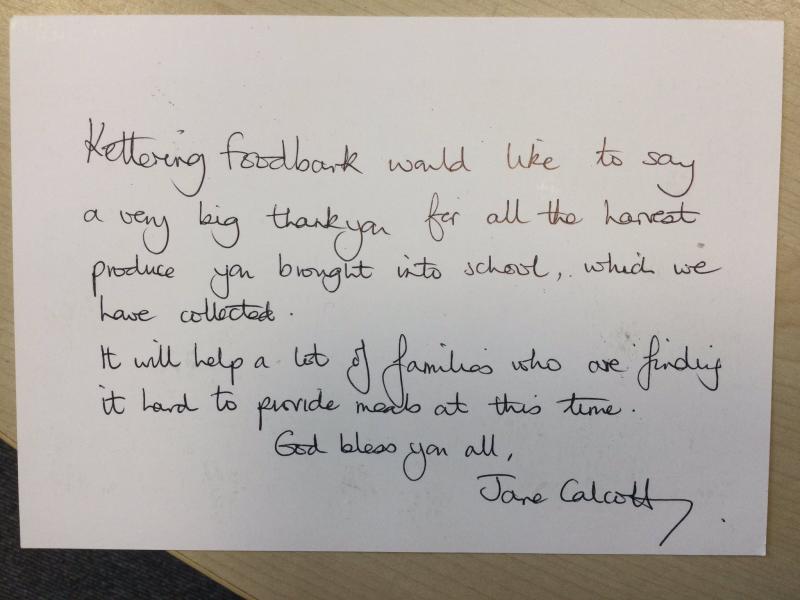 Kettering foodbank would like to say
a very big thankyou for all the harvest
produce you brought into school, which we
have collected.
It will help a lot of families who are finding
it hard to provide meals at this time.
God bless you all,
Jane Calcott